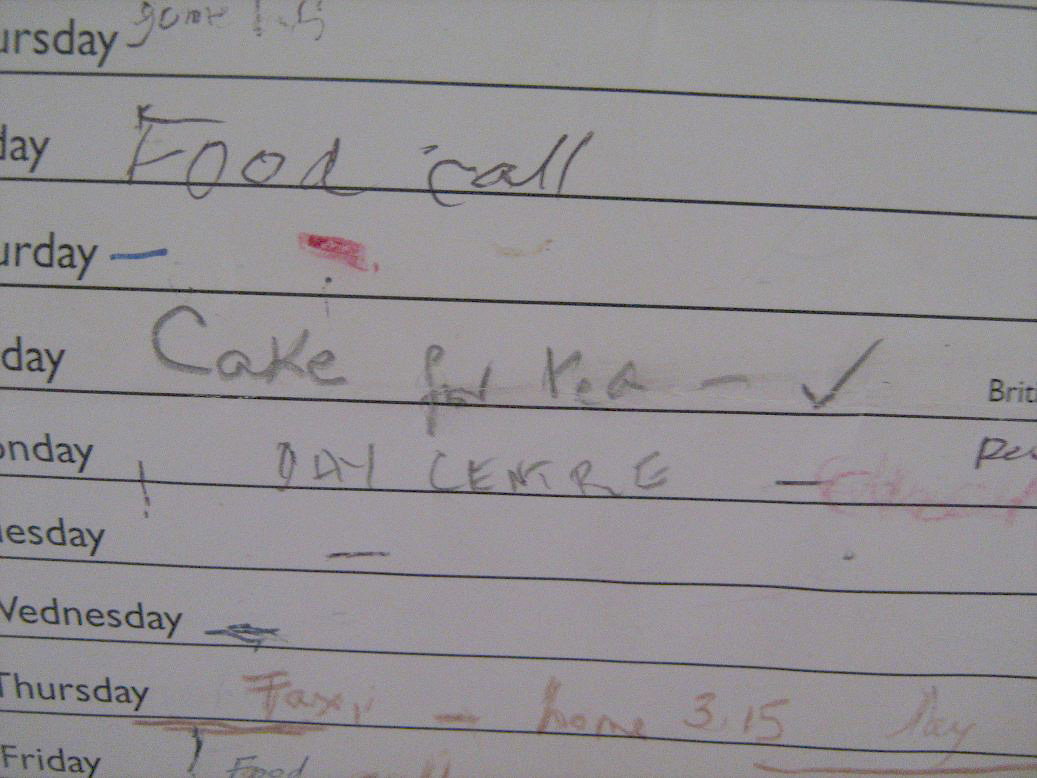 ursday
day Food call
urday —
day Cake for tea — ✓ Brit
onday DAY CENTRE —
esday —
Wednesday
Thursday Taxi — home 3.15 Day
Friday Food